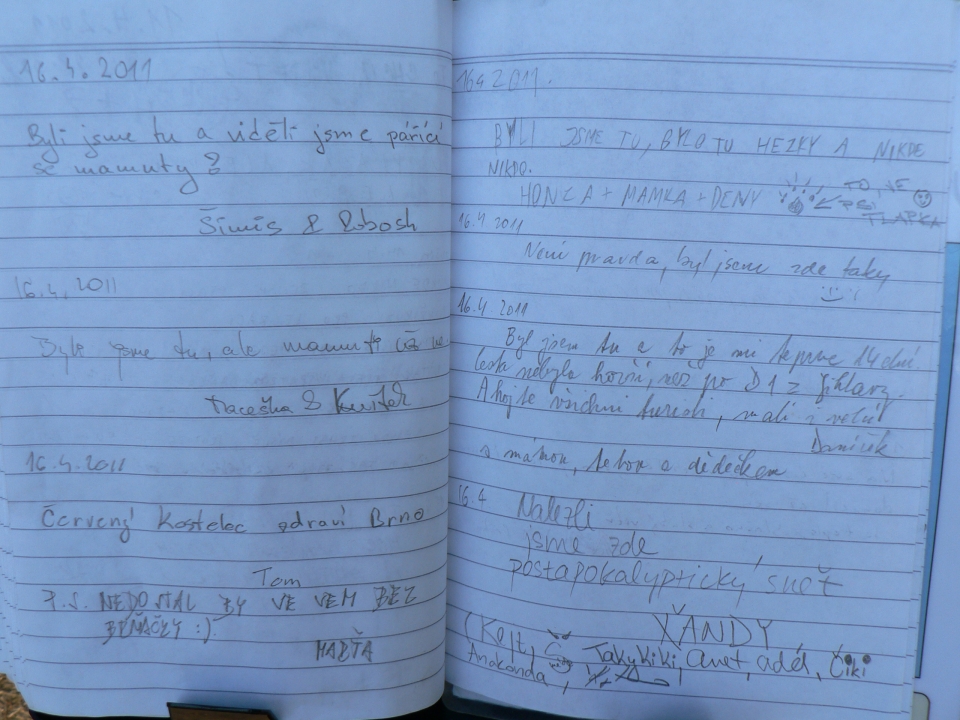 16.4.2011
Byli jsme tu a viděli jsme pářící
se mamuty?
Šimis & Robosh
16.4.2011
Byli jsme tu, ale mamuti
Maceška & Kvítek
16.4.2011
Červený Kostelec zdraví Brno
Tom
P.S. NEDOSTAL BY VE VEM BEZ
:)
HADŤA
16.4.2011.
BYLI JSME TU, BYLO TU HEZKY A NIKDE
NIKDO.
HONZA + MAMKA + DENY TO JE
TLAPKA
16.4.2011
Není pravda, byl jsem zde taky
16.4.2011
Byl jsem tu a to je mi teprve 14 dní.
Cesta nebyla horší, než po D1 z Jihlavy.
Ahojte všichni turisti, malí i velcí
Daníček
s mámou, tetou a dědečkem
16.4 Nalezli
jsme zde
postapokalyptický svět
XANDY
(Kejt, TakyKiki, anet, adél, Čiki
Anakonda,